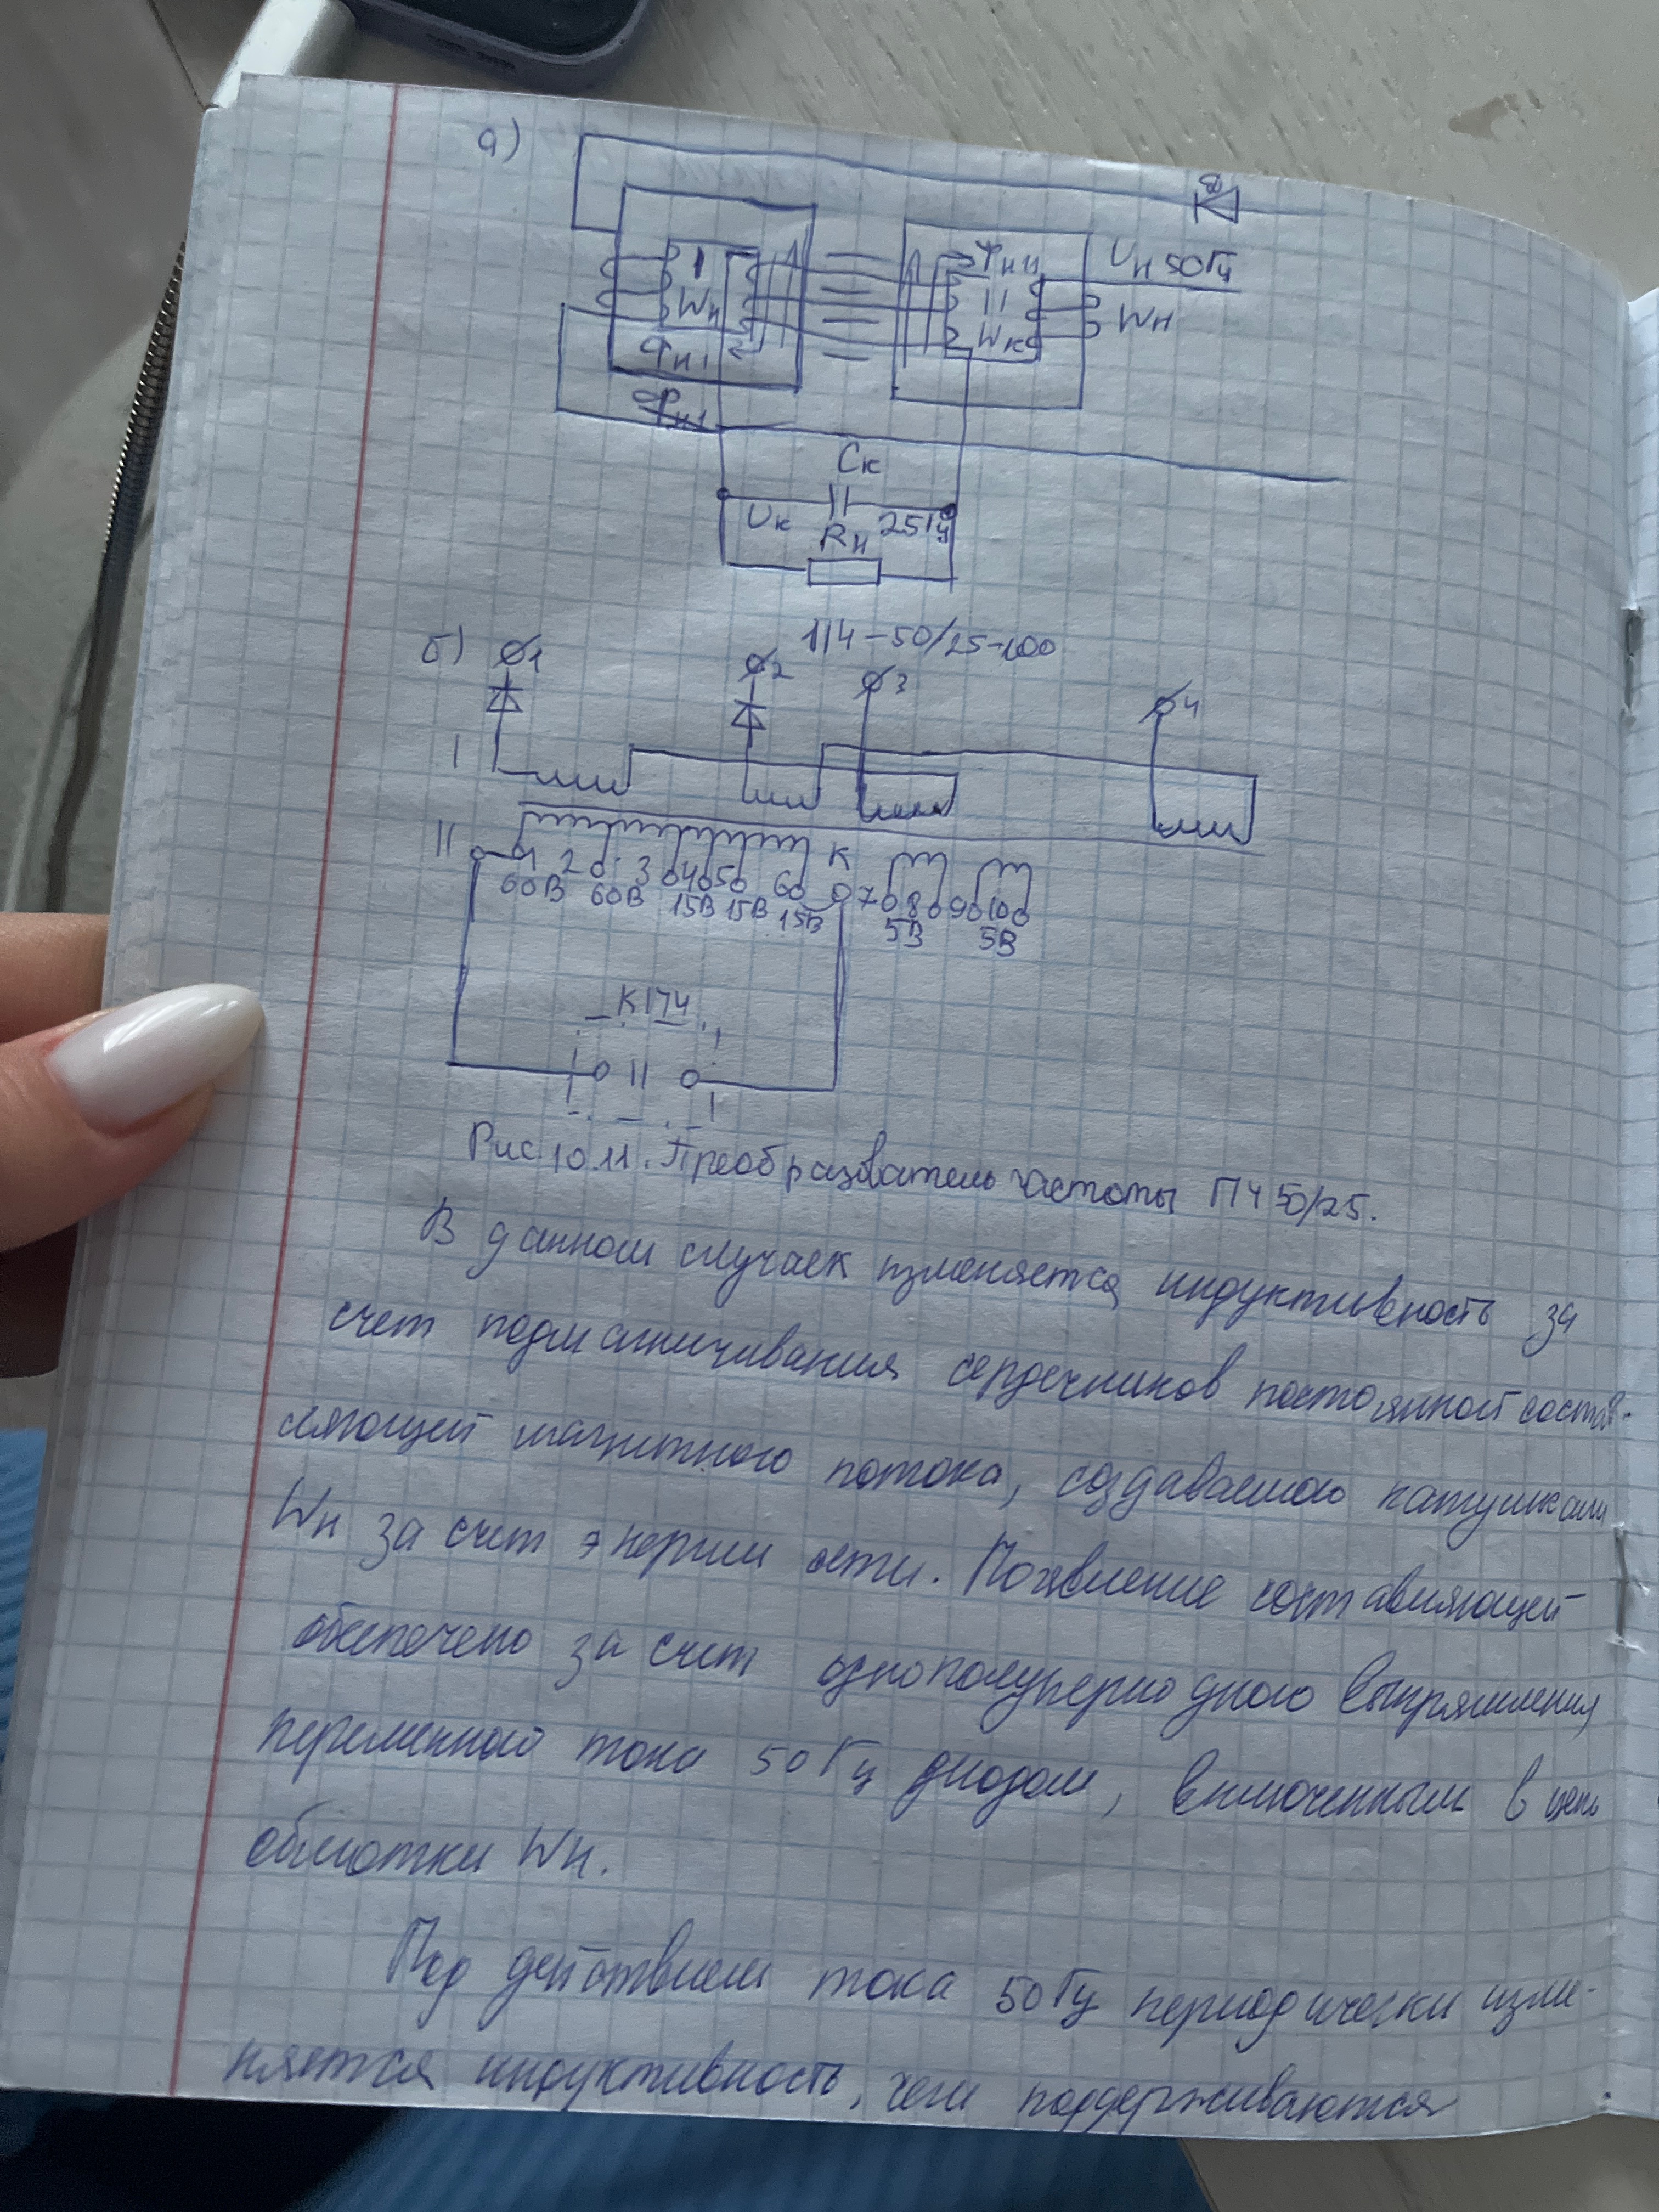 а)
I
Wн
Фн1
Фн1
II
Wк
Uн 50Гц
Wн
Cк
Uк
25Гц
Rн
б)
ПЧ-50/25-100
1
2
3
4
I
II
1 2 3 4 5 6 К 7 8 9 10
60В 60В 15В 15В 15В 5В 5В
КПЧ
Рис 10.11. Преобразователь частоты ПЧ 50/25.
В данном случаек изменяется индуктивность за
счет подмагничивания сердечников постоянной состав-
ляющей магнитного потока, создаваемого катушками
Wн за счет энергии сети. Появление составляющей
обеспечено за счет однополупериодного выпрямления
переменного тока 50Гц диодом, включенным в цепь
обмотки Wн.
Под действием тока 50Гц периодически изме-
няется индуктивность, чем поддерживаются